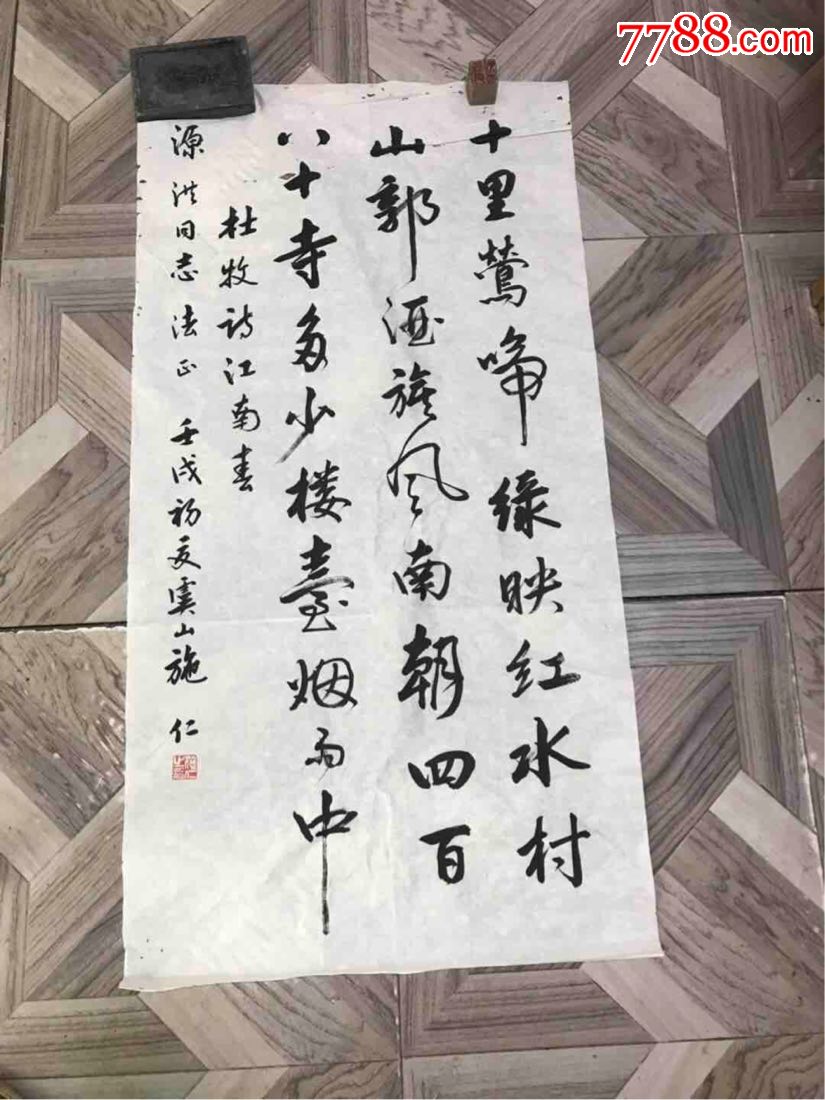 7788.com
十里鶯啼绿映红水村
山郭酒旗风南朝四百
八十寺多少楼臺烟雨中
杜牧诗江南春
源洪同志法正 壬戌初夏虞山施仁